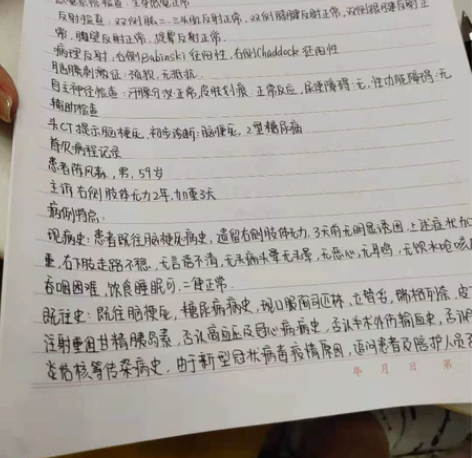 反射检查：双侧肱二、三头肌反射正常，双侧膝腱反射正常，双侧跟腱反射正
常，腹壁反射正常，提睾反射正常。
病理反射：右侧Babinski征阳性，右侧Chaddock征阳性
脑膜刺激征：颈软，无抵抗。
自主神经检查：汗腺分泌正常，皮肤划痕：正常反应，尿便障碍：无，性功能障碍：无
辅助检查
头CT提示脑梗死，初步诊断：脑梗死，2型糖尿病
首次病程记录
患者陈风森，男，59岁
主诉 右侧肢体无力2年，加重3天
病例特点：
现病史：患者既往脑梗死病史，遗留右侧肢体无力，3天前无明显诱因，上述症状加
重，右下肢走路不稳，无言语不清，无头痛头晕，无恶心，无耳鸣，无饮水呛咳
吞咽困难，饮食睡眠可，二便正常。
既往史：既往脑梗死，糖尿病病史，现口服阿司匹林，立普妥，瑞格列奈，皮
注射重组甘精胰岛素，否认高血压及冠心病病史，否认手术外伤输血史，否认
结核等传染病史，由于新型冠状病毒疫情原因，追问患者及陪护人员
年 月 日 第